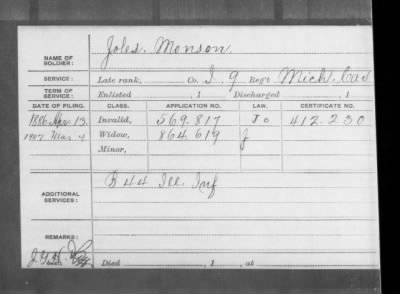 NAME OF SOLDIER: Joles. Monson.
SERVICE: Late rank, Co. I. 9 Reg't Mich. Cav
TERM OF SERVICE: Enlisted , 1 Discharged , 1
DATE OF FILING. CLASS. APPLICATION NO. LAW. CERTIFICATE NO.
1886 Apr. 13. Invalid, 569.817 412.230
1907 Mar. 4 Widow, 864.619
Minor,
ADDITIONAL SERVICES: B 44 Ill. Inf
REMARKS:
Died , 1 , at